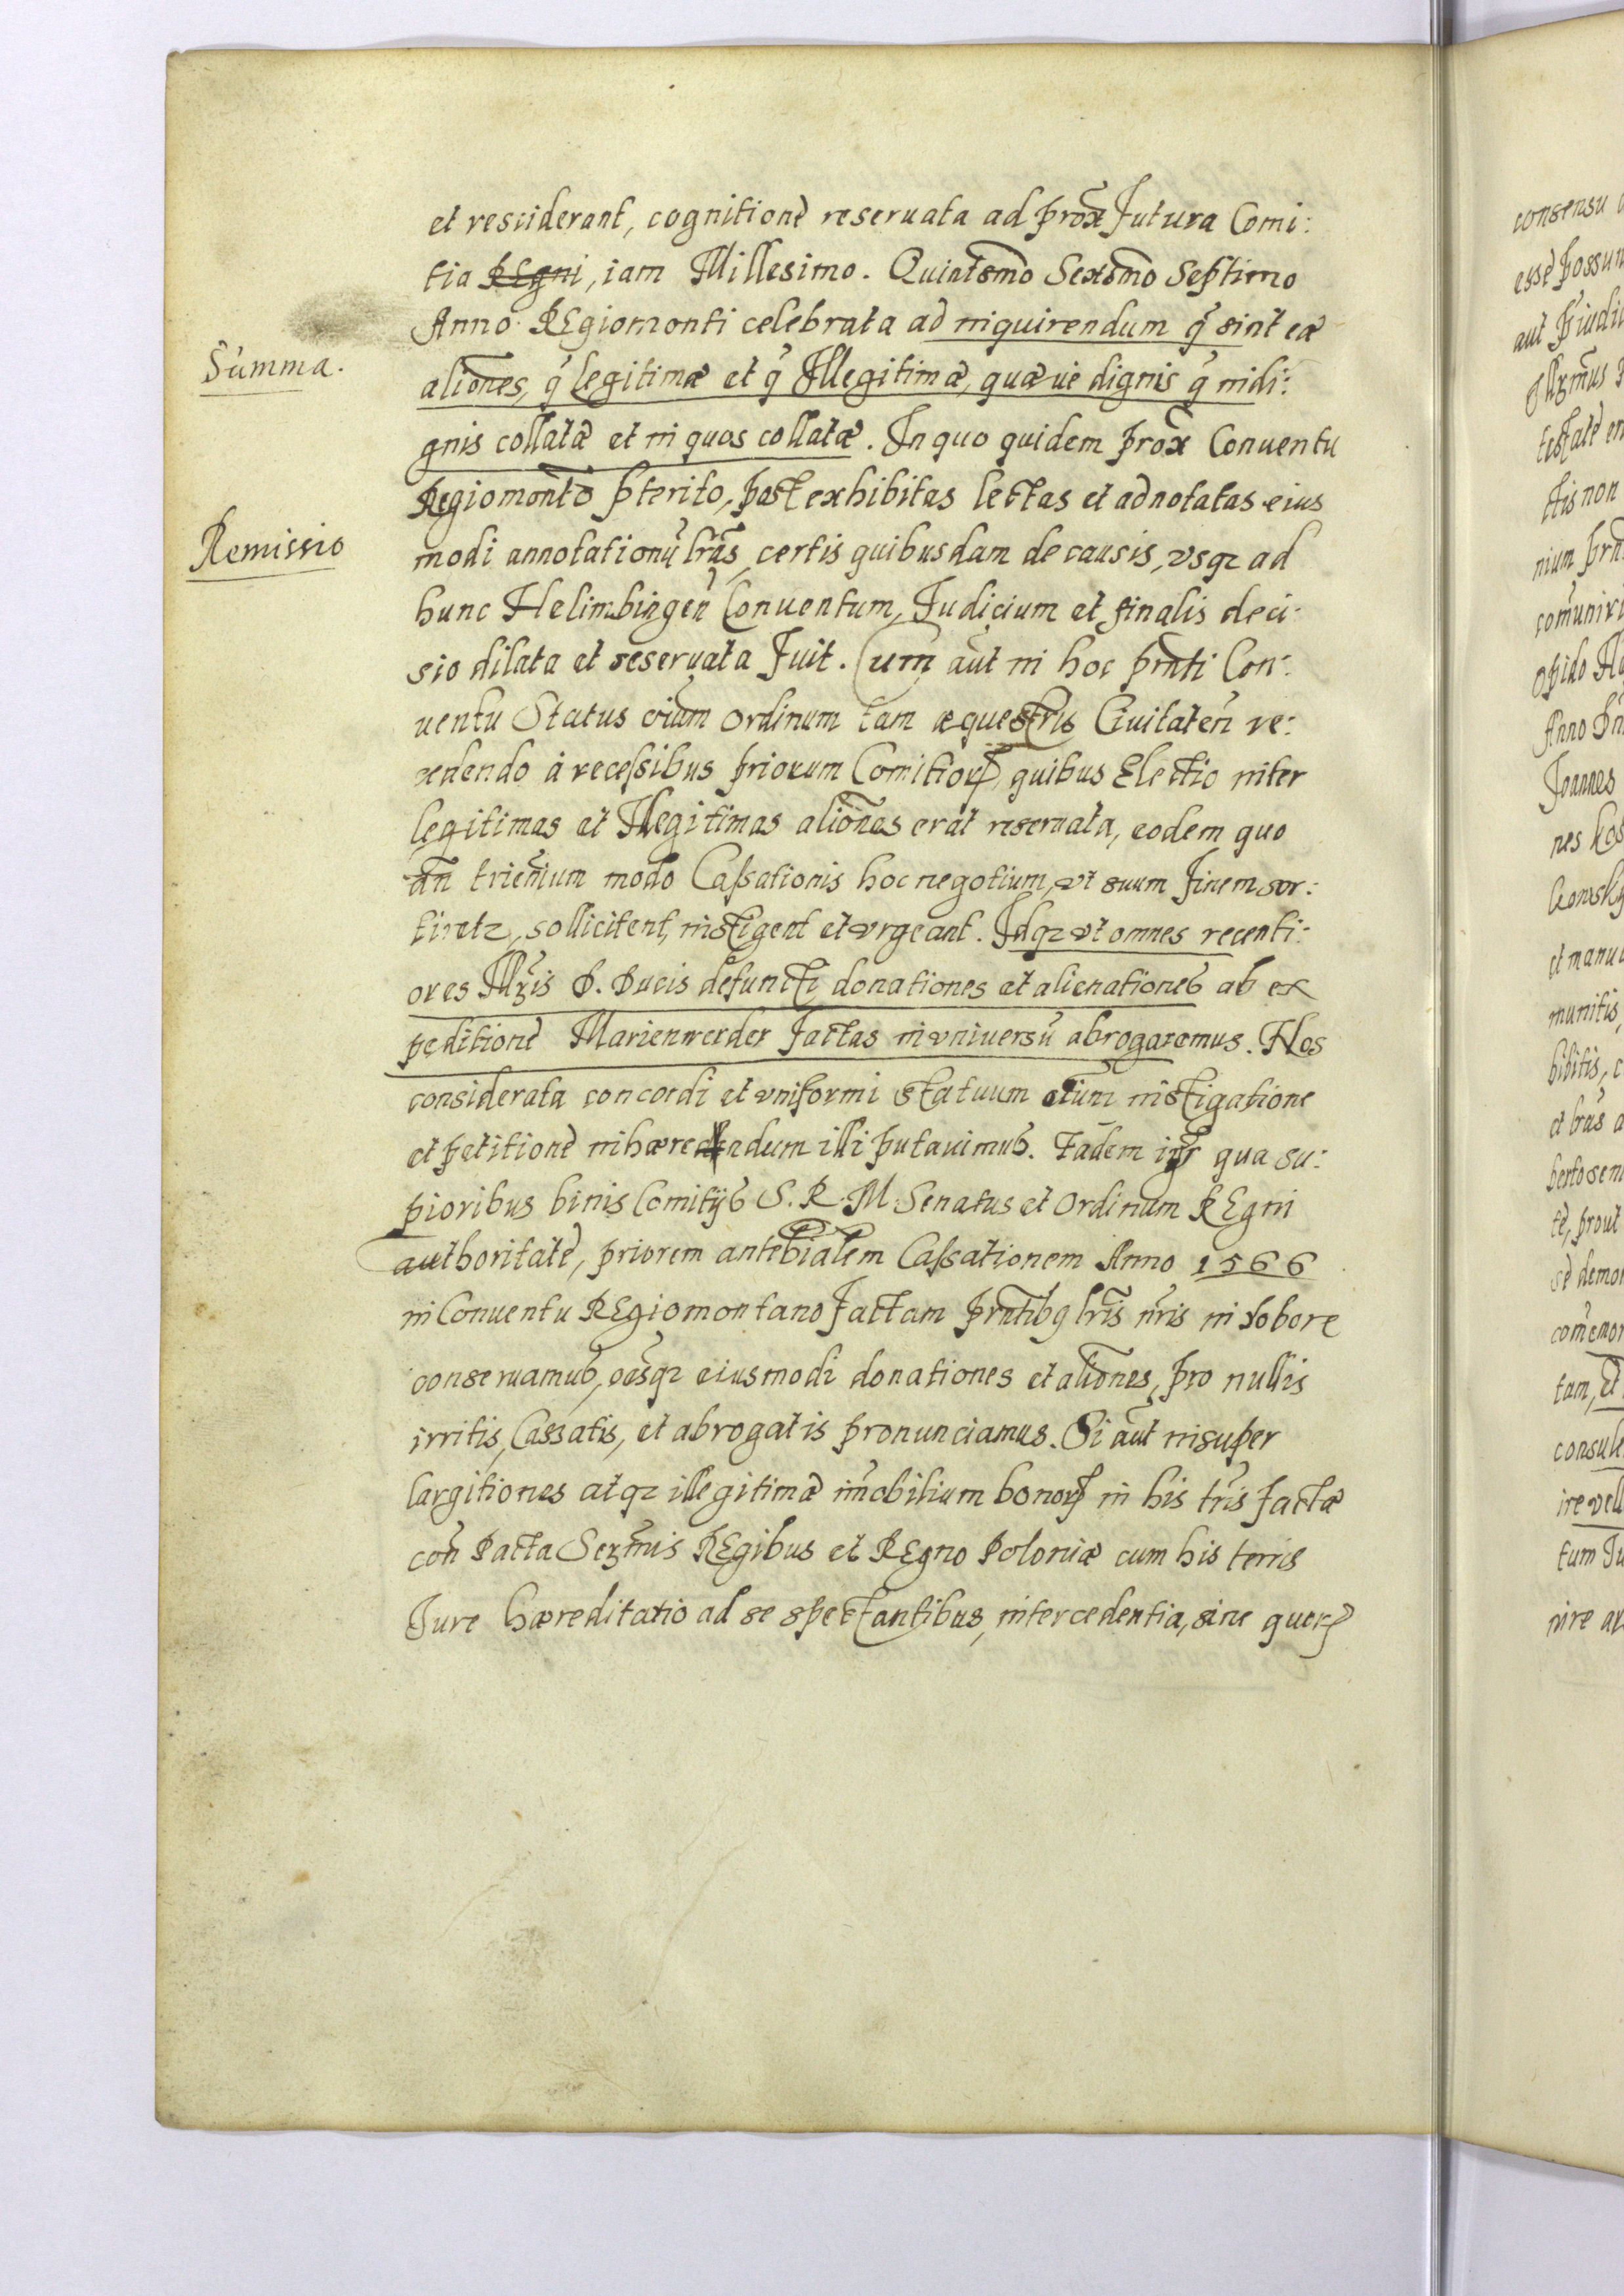 et resciderant, cognitionè reseruata ad prox̃ Futura Comi:
tia REgni, iam Millesimo. Quintsm̃o Sexsm̃o Septimo
Anno REgiomonti celebrata ad inquirendum q̃ sint eæ
Summa.
alion̄es, q̃ legitimæ et q̃ Illegitimæ, quæ uè dignis q̃ indi:
gnis collatæ et in quos collatæ. In quo quidem prox̃ Conuentu
Regiomont̃o p̃terito, post exhibitas lectas et adnotatas eius
Remissio
modi annotationũ lr̃as, certis quibusdam de causis, vsqꝫ ad
hunc Helimbirgeñ Conuentum, Iudicium et finalis deci:
sio dilata et reseruata Fuit. Cum aũt in hoc pñti Con:
uentu Status oĩum ordinum tam æquestris Ciuitateñ re:
cedendo à recessibus priorum Comitioꝝ, quibus Electio inter
legitimas et Illegitimas alion̄es erat reseruata, eodem quo
añ trieñium modo Cassationis hoc negotium, vt suum Finem sor:
tiretꝛ, sollicitent, instigent et vrgeant. Idqꝫ vt omnes recenti:
ores Illr̃is D. Ducis defuncti donationes et alienationes ab ex
peditionè Marienwerder Factas in vniuersũ abrogaremus. Nos
considerata concordi et vniformi Statuum oĩum instigatione
et petitionè inhærendum illi putauimus. Eadem igr̃ qua su:
pioribus binis Comitijs S. R. M. Senatus et Ordinum REgni
authoritatè, priorem antebialem Cassationem Anno 1566
in Conuentu REgiomontano Factam pñtibꝫ lr̃is nr̃is in robore
conseruamus, oẽsqꝫ eiusmodi donationes et alion̄es, pro nullis
irritis, Cassatis, et abrogatis pronunciamus. Si aũt insuper
largitiones atqꝫ illegitimæ im̃obilium bonoꝝ in his tr̃is Factæ
coñ Pacta Serm̃is REgibus et REgno Poloniæ cum his terris
Iure hæreditatio ad se spectantibus, intercedentia, sine queꝝ